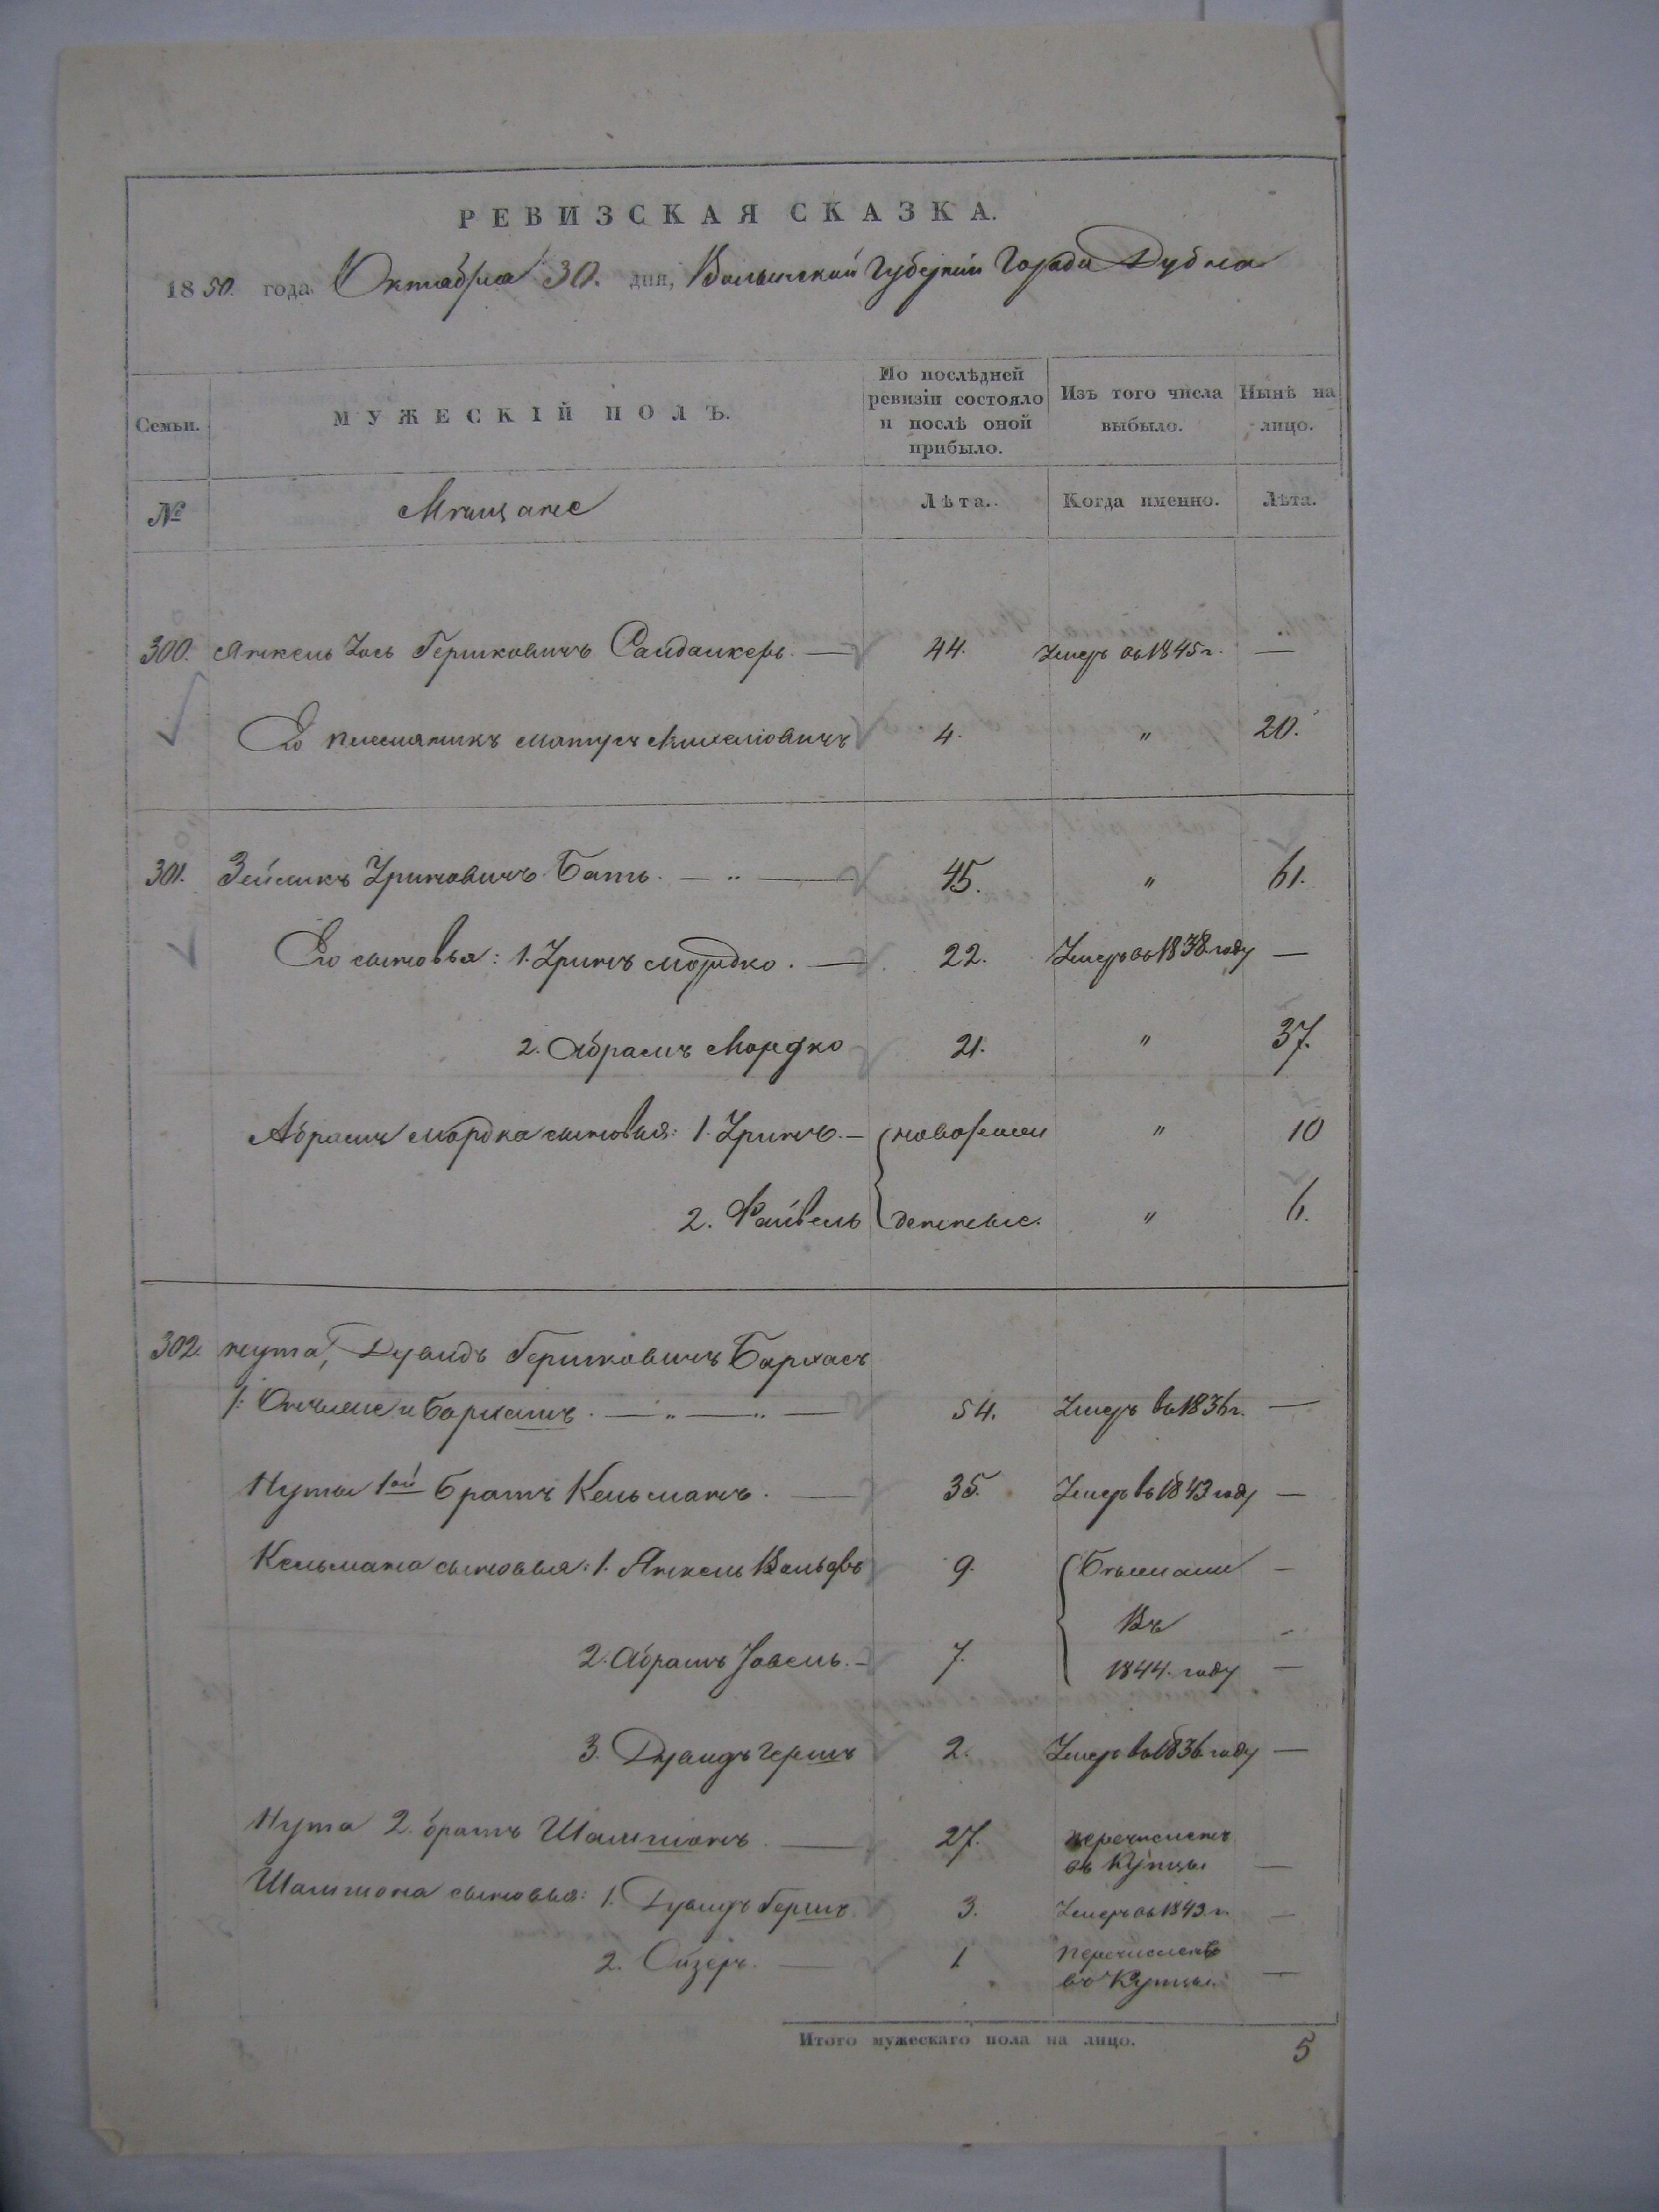 РЕВИЗСКАЯ СКАЗКА.
1850. года Октября 30. дня, Волынской Губерніи Города Дубна
Семьи. МУЖЕСКІЙ ПОЛЪ. По послѣдней ревизіи состояло и послѣ оной прибыло. Изъ того числа выбыло. Нынѣ на лицо.
№ Мѣщане Лѣта. Когда именно. Лѣта.
300. Янкель Іось Гершковичъ 44. Умеръ въ 1845 г. —
Его племянникъ Матусъ 4. " 20.
301. Зейликъ Уриновичъ Батъ. — " — 45. " 61.
Его сыновья: 1. Уринъ Мордко. — 22. Умеръ въ 1838 году —
2. Абрамъ Мордко 21. " 37.
Абрама Мордка сыновья: 1. Уринъ. — новорожден " 10
2. Файвель денные. " 6.
302. Нута, Дувидъ Гершковичъ Бархасъ
54. Умеръ въ 1836 г. —
Нуты 1ой братъ Кельманъ. — 35. Умеръ въ 1843 году —
Кельмана сыновья: 1. Янкель Вольфъ 9. Бѣжали —
Въ
2. Абрамъ Іовель. — 7. 1844. году —
3. Дувидъ Гершъ 2. Умеръ въ 1836 году —
Нута 2. братъ Шлимонъ. — 27. перечисленъ
въ Купцы —
сыновья: 1. Дувидъ Гершъ 3. Умеръ въ 1843. г. —
2. Ойзеръ. — 1 перечисленъ
въ Купцы. —
Итого мужескаго пола на лицо. 5